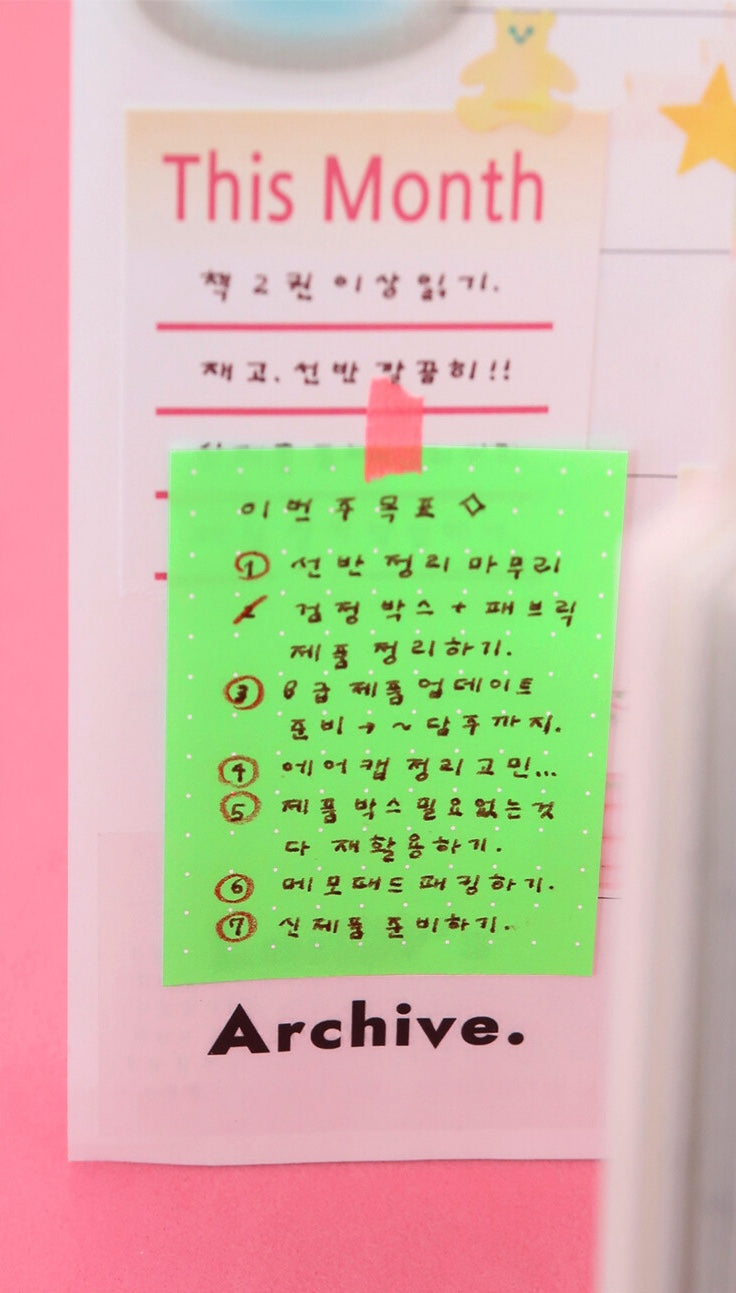 This Month
책 2권 이상 읽기.
재고. 선반 깔끔히!!
이번주 목표
① 선반 정리 마무리
2 검정 박스 + 패브릭
제품 정리하기.
③ B급 제품 업데이트
준비 → ~담주까지.
④ 에어캡 정리 고민...
⑤ 제품 박스 필요없는것
다 재활용하기.
⑥ 메모패드 패킹하기.
⑦ 신제품 준비하기.
Archive.